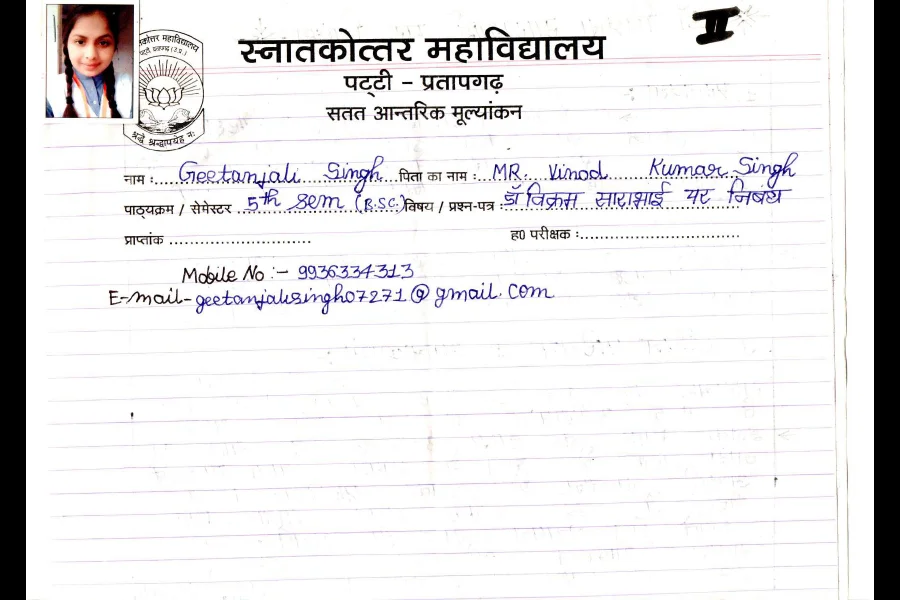 II
स्नातकोत्तर महाविद्यालय
पट्टी - प्रतापगढ़
सतत आन्तरिक मूल्यांकन
श्रद्धे श्रद्धापयेह नः
नाम : Geetanjali Singh पिता का नाम : MR. Vinod Kumar Singh
पाठ्यक्रम / सेमेस्टर 5th sem (B.SC.) विषय / प्रश्न-पत्र : डॉ विक्रम साराभाई पर निबंध
प्राप्तांक ..............................
ह0 परीक्षक :..................................
Mobile No :- 9936334313
E-mail- geetanjalisingh07271@gmail.com